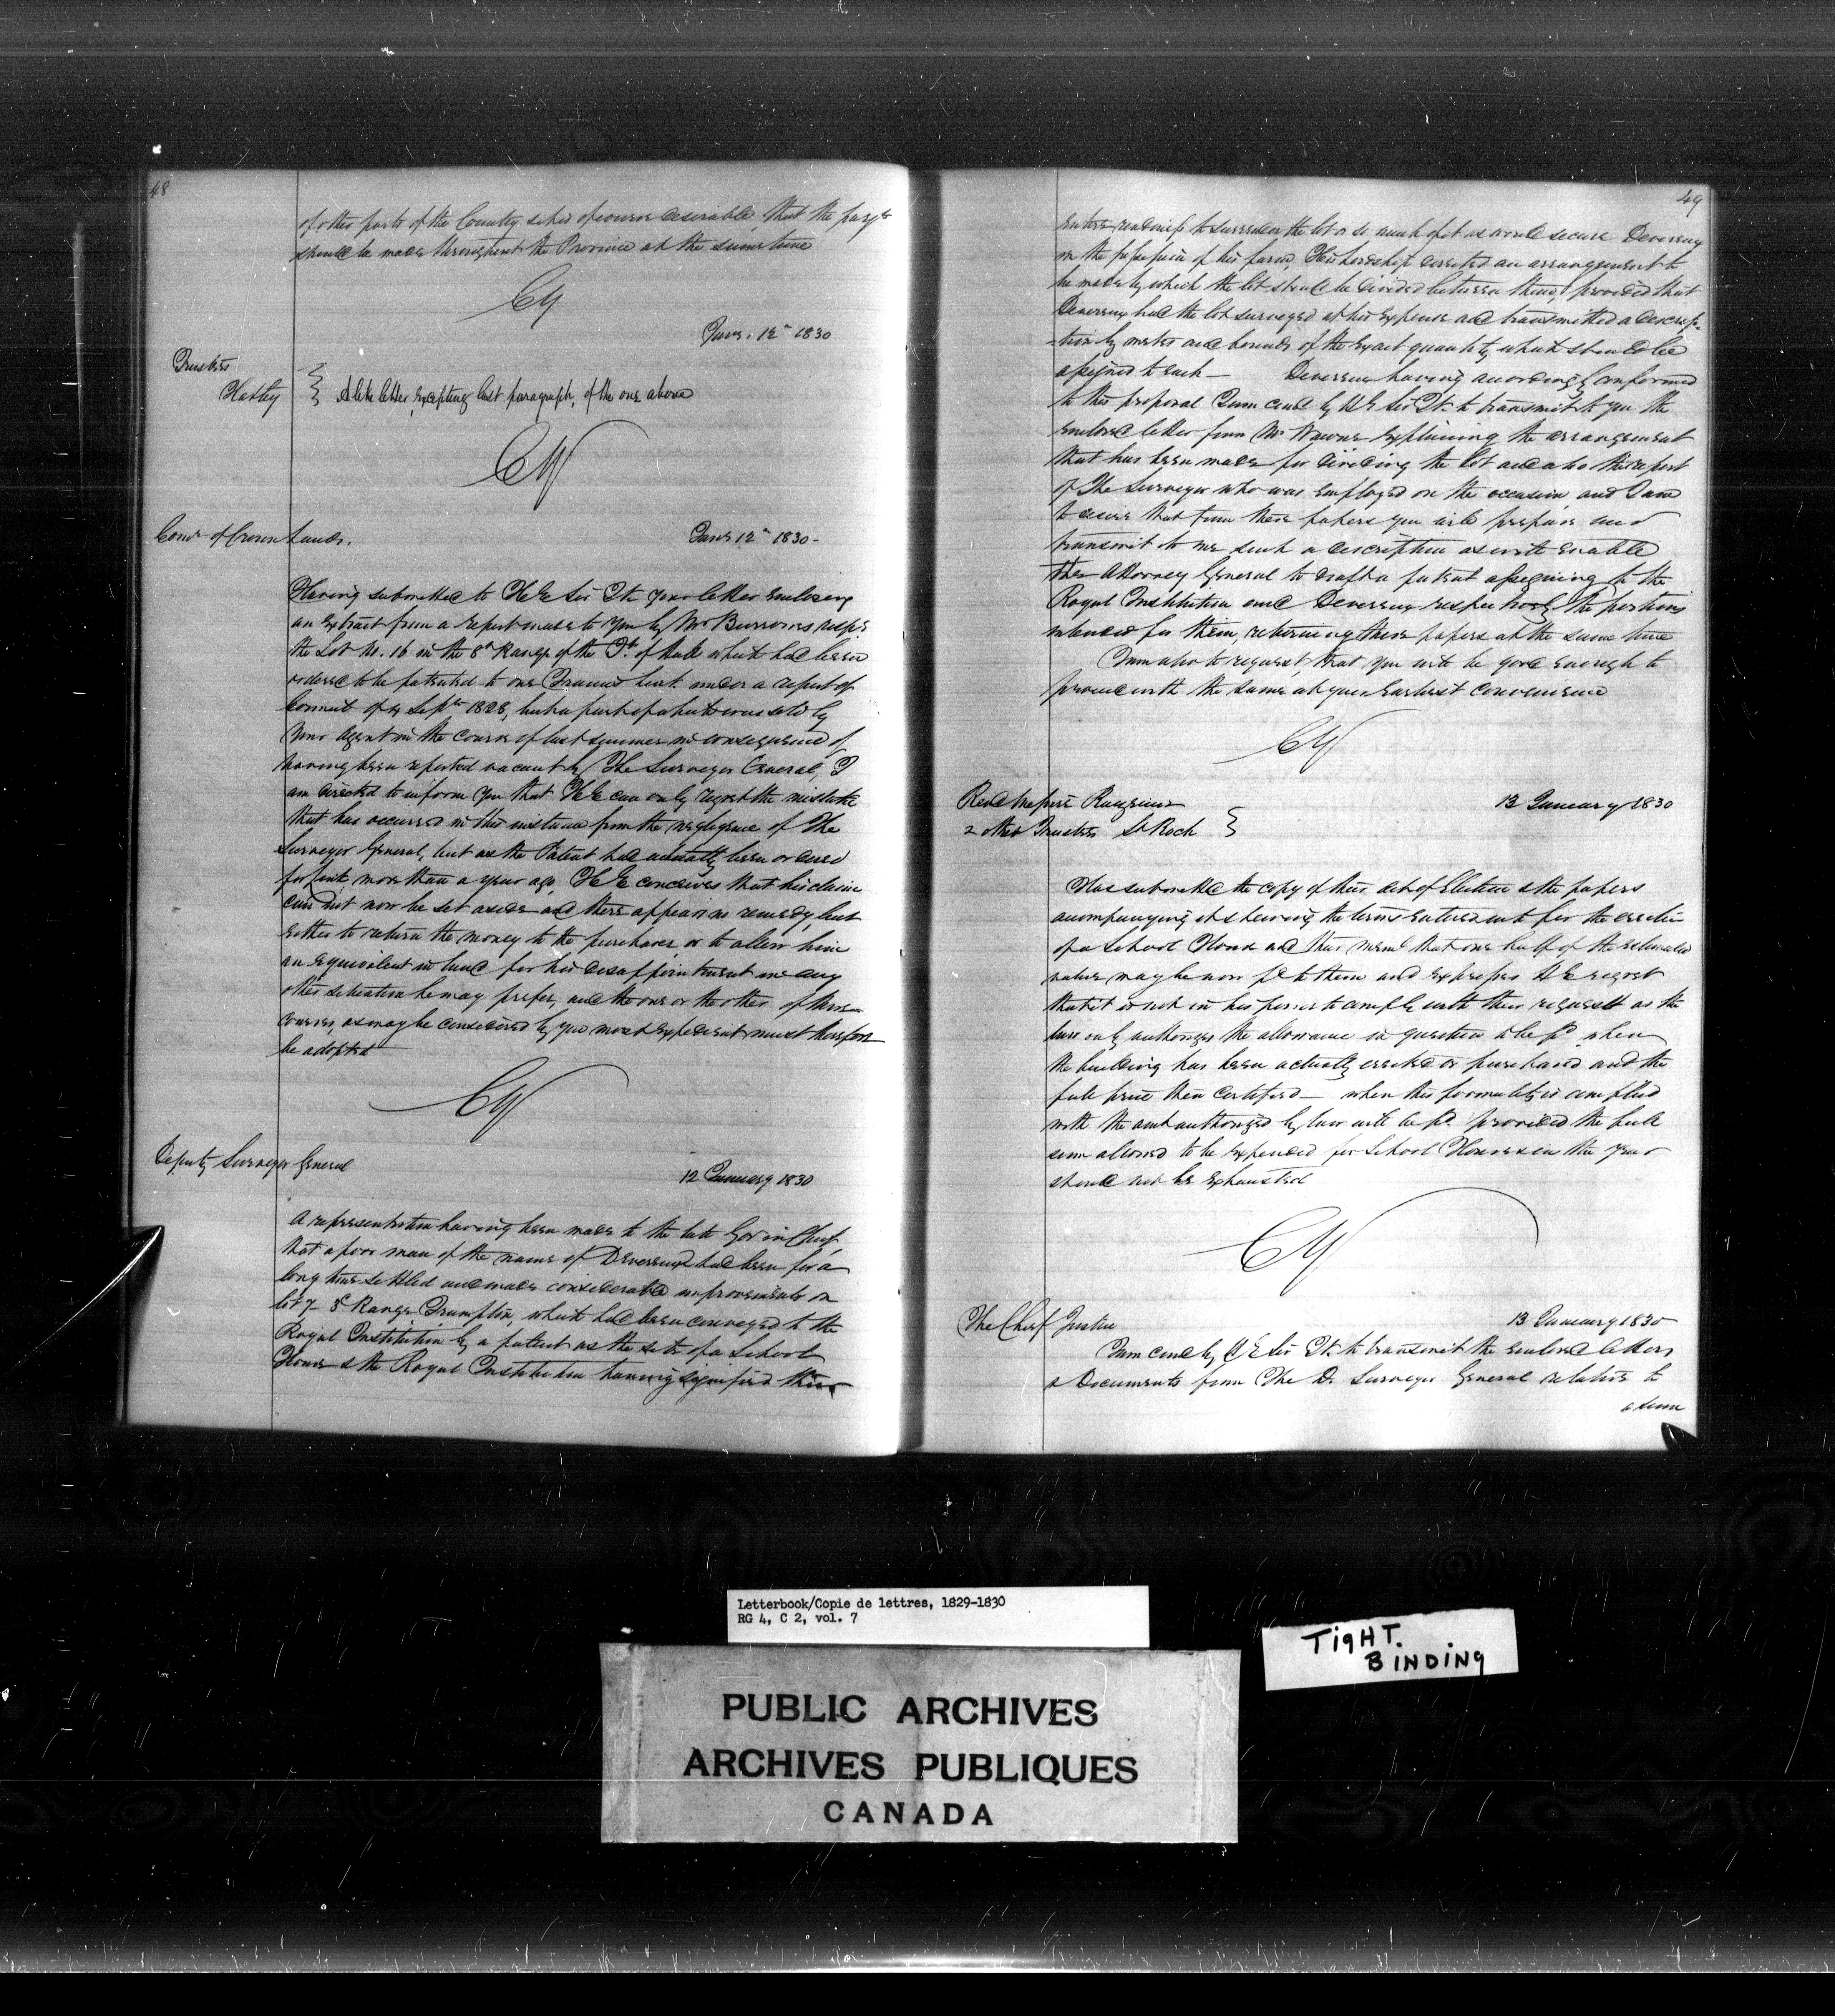 48
of other parts of the Country & her of course desirable that the paymts
should be made throughout the Province at the same time
CY
Jany. 12th 1830
Trustees
Hatley
A like letter, excepting last paragraph, of the one above
CY
Comr of Crown Lands.
Jany 12th 1830-
Having submitted to H E Sir Js. your letter enclosing
an Extract from a report made to you by Mr Burrowes respg.
the Lot No. 16 in the 8th Range of the Tp. of Hull which had been
ordered to be patented to one under a report of
Council of 4 Septr 1828, but a part of which was sold by
your Agent in the course of last summer in consequence of
having been reported vacant by The Surveyor General, I
am directed to inform you that H E can only regret the mistake
that has occurred in this instance from the negligence of The
Surveyor General, but as the Patent had actually been ordered
for more than a year ago, H E conceives that his claim
can not now be set aside and there appears no remedy but
either to return the money to the purchaser or to allow him
an equivalent in land for his disappointment in any
other situation he may prefer, and the one or the other of these
courses, as may be considered by you most expedient must therefore
be adopted
CY
Deputy Surveyor General
12 January 1830
A representation having been made to the late Govr in Chief,
that a poor man of the name of Devereux had been for a
long time settled and made considerable improvements on
lot 7 - 3d Range Frampton, which had been conveyed to the
Royal Institution by a patent as the site of a School
House & the Royal Institution having signified their
49
entire readiness to surrender the lot or so much of it as would secure Devereux
in the possession of his farm, His Lordship directed an arrangement to
be made by which the lot should be divided between them, provided that
Devereux had the lot surveyed at his expense and transmitted a descrip-
-tion by metes and bounds of the exact quantity which should be
assigned to each - Devereux having accordingly conformed
to this proposal I am comd by H E Sir Js. to transmit to you the
enclosed letter from Mr explaining the arrangement
that has been made for dividing the lot and also the report
of The Surveyor who was employed on the occasion and I am
to desire that from these papers you will prepare and
transmit to me such a description as will enable
the Attorney General to draft a patent assigning to the
Royal Institution and Devereux respectively the portions
intended for them, returning these papers at the same time
I am also to request, that you will be good enough to
proceed with the same at your earliest convenience
CY
Revd Messire
& other Trustees St Roch
13 January 1830
Has submitted the copy of their Act of Election & the papers
accompanying it shewing the terms entered into for the erection
of a School House and their meml that one half of the estimated
value may be now pd to them and expresses H E regret
that it is not in his power to comply with their request as the
law only authorizes the allowance in question to be pd when
the building has been actually erected or purchased and the
full price then certified - when this formality is complied
with the amt authorized by law will be pd. provided the full
sum allowed to be expended for School Houses in the year
should not be exhausted
CY
The Chief Justice
13 January 1830
I am comd by H E Sir Js. to transmit the enclosed letters
& Documents from The D. Surveyor General relative to
a sum
Letterbook/Copie de lettres, 1829-1830
RG 4, C 2, vol. 7
TIGHT.
BINDING
PUBLIC ARCHIVES
ARCHIVES PUBLIQUES
CANADA